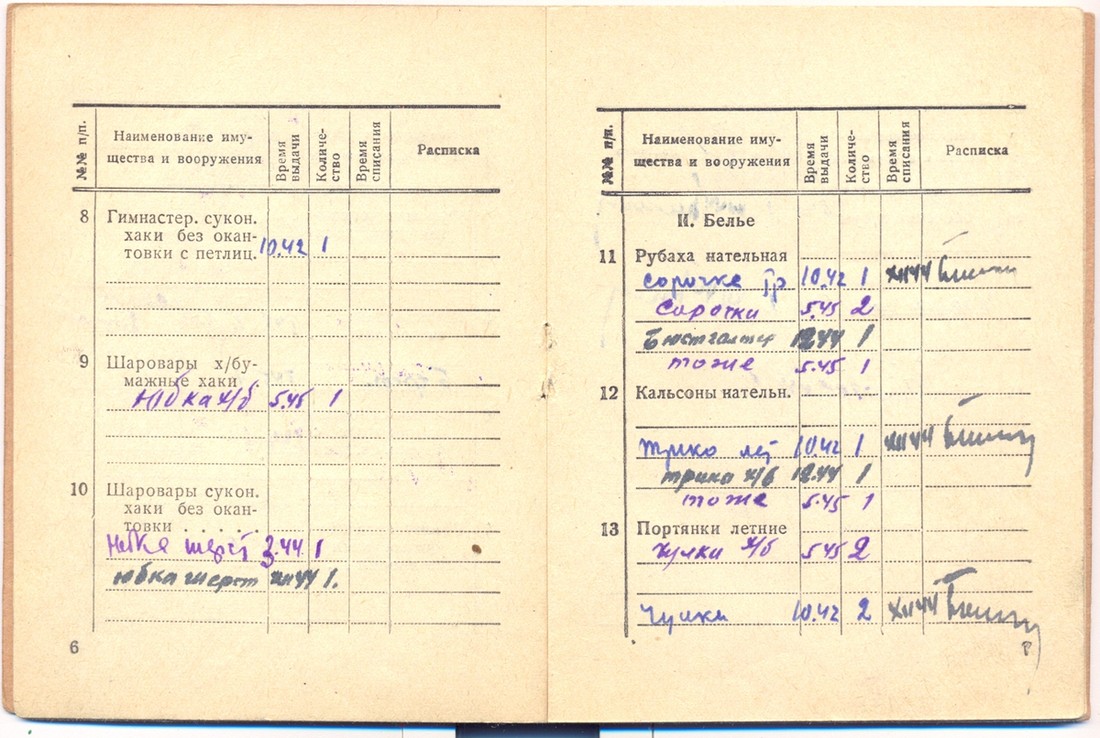 №№ п/п.
Наименование иму-
щества и вооружения
Время
выдачи
Количе-
ство
Время
списания
Расписка
8 Гимнастер. сукон.
хаки без окан-
товки с петлиц. 10.42 1
9 Шаровары х/бу-
мажные хаки
Юбка х/б 5.45 1
10 Шаровары сукон.
хаки без окан-
товки . . . . .
3.44 1
юбка шерст XII 44 1.
6
№№ п/п.
Наименование иму-
щества и вооружения
Время
выдачи
Количе-
ство
Время
списания
Расписка
И. Белье
11 Рубаха нательная
сорочка 10.42 1 XII 44
Сорочки 5.45 2
Бюстгалтер 12.44 1
тоже 5.45 1
12 Кальсоны нательн.
Трико лет 10.42 1 XII 44
трико х/б 12.44 1
тоже 5.45 1
13 Портянки летние
Чулки х/б 5.45 2
Чулки 10.42 2 XII 44